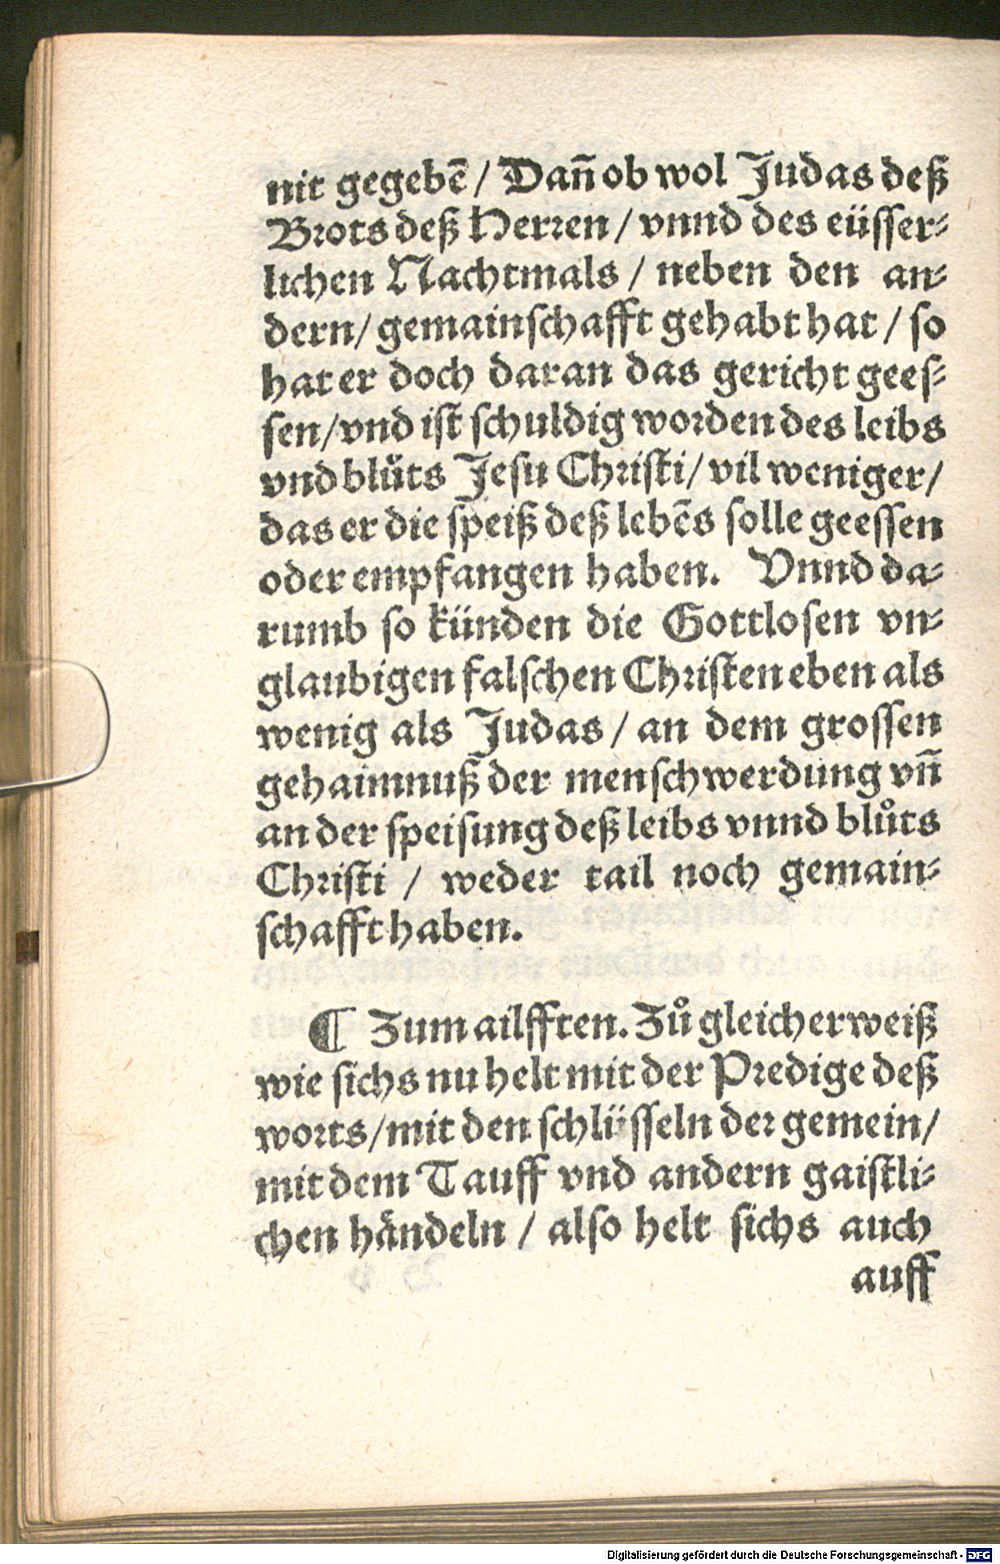 nit gegebē / Dañ ob wol Judas deß
Brots deß Herren / vnnd des eüsser⸗
lichen Nachtmals / neben den an⸗
dern / gemainschafft gehabt hat / so
hat er doch daran das gericht gees⸗
sen / vnd ist schuldig worden des leibs
vnd blůts Jesu Christi / vil weniger /
das er die speiß deß lebēs solle geessen
oder empfangen haben. Vnnd da⸗
rumb so künden die Gottlosen vn⸗
glaubigen falschen Christen eben als
wenig als Judas / an dem grossen
gehaimnuß der menschwerdung vñ
an der speisung deß leibs vnnd blůts
Christi / weder tail noch gemain⸗
schafft haben.
¶ Zum ailfften. Zů gleicher weiß
wie sichs nu helt mit der Predige deß
worts / mit den schlüsseln der gemein /
mit dem Tauff vnd andern gaistli⸗
chen händeln / also helt sichs auch
auff
Digitalisierung gefördert durch die Deutsche Forschungsgemeinschaft - DFG